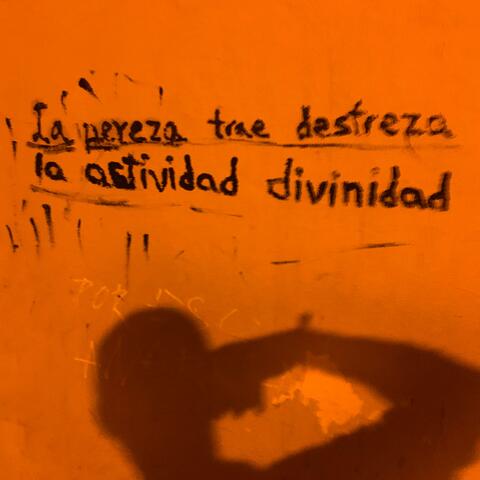 La pereza trae destreza
la actividad divinidad
POR